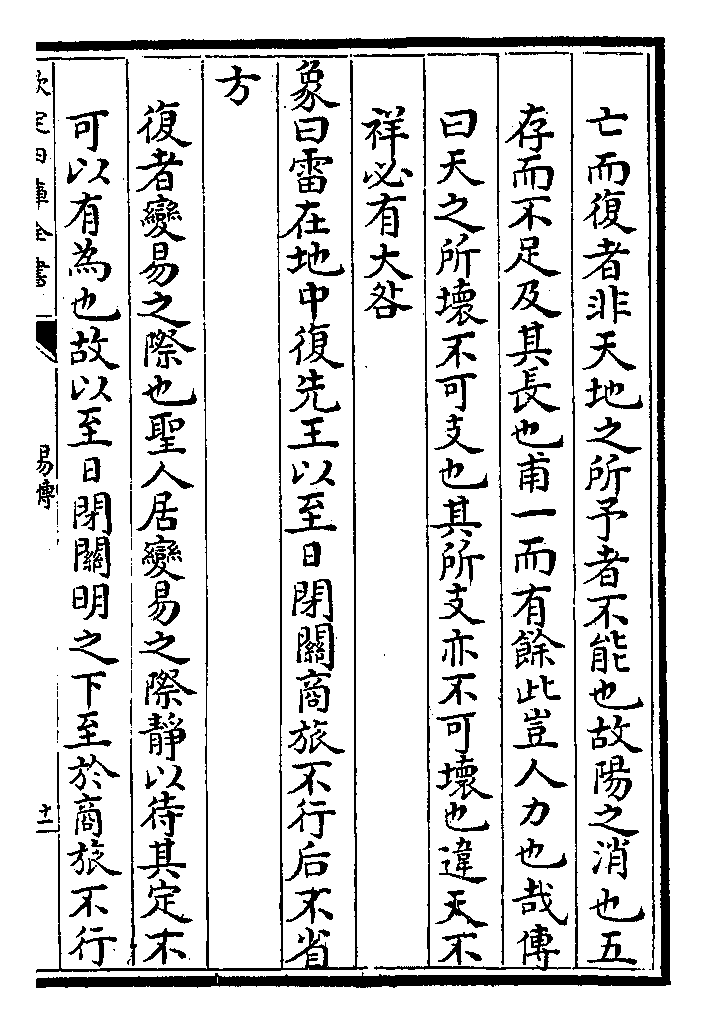 亡而復者非天地之所予者不能也故陽之消也五
存而不足及其長也甫一而有餘此豈人力也哉傳
曰天之所壞不可支也其所支亦不可壞也違天不
祥必有大咎
象曰雷在地中復先王以至日閉關商旅不行后不省
方
復者變易之際也聖人居變易之際靜以待其定不
可以有為也故以至日閉關明之下至於商旅不行
欽定四庫全書
易傳
十二